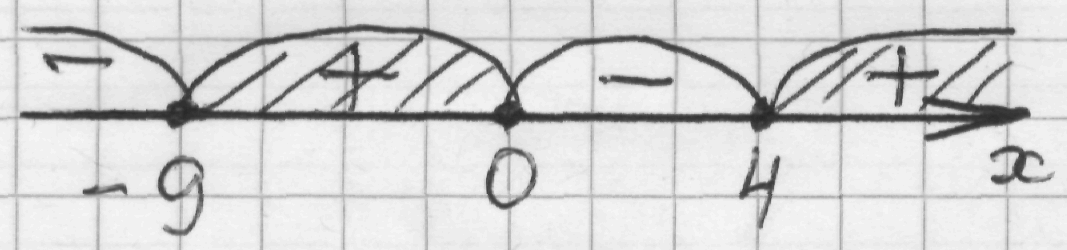 - + - +
-9 0 4 x